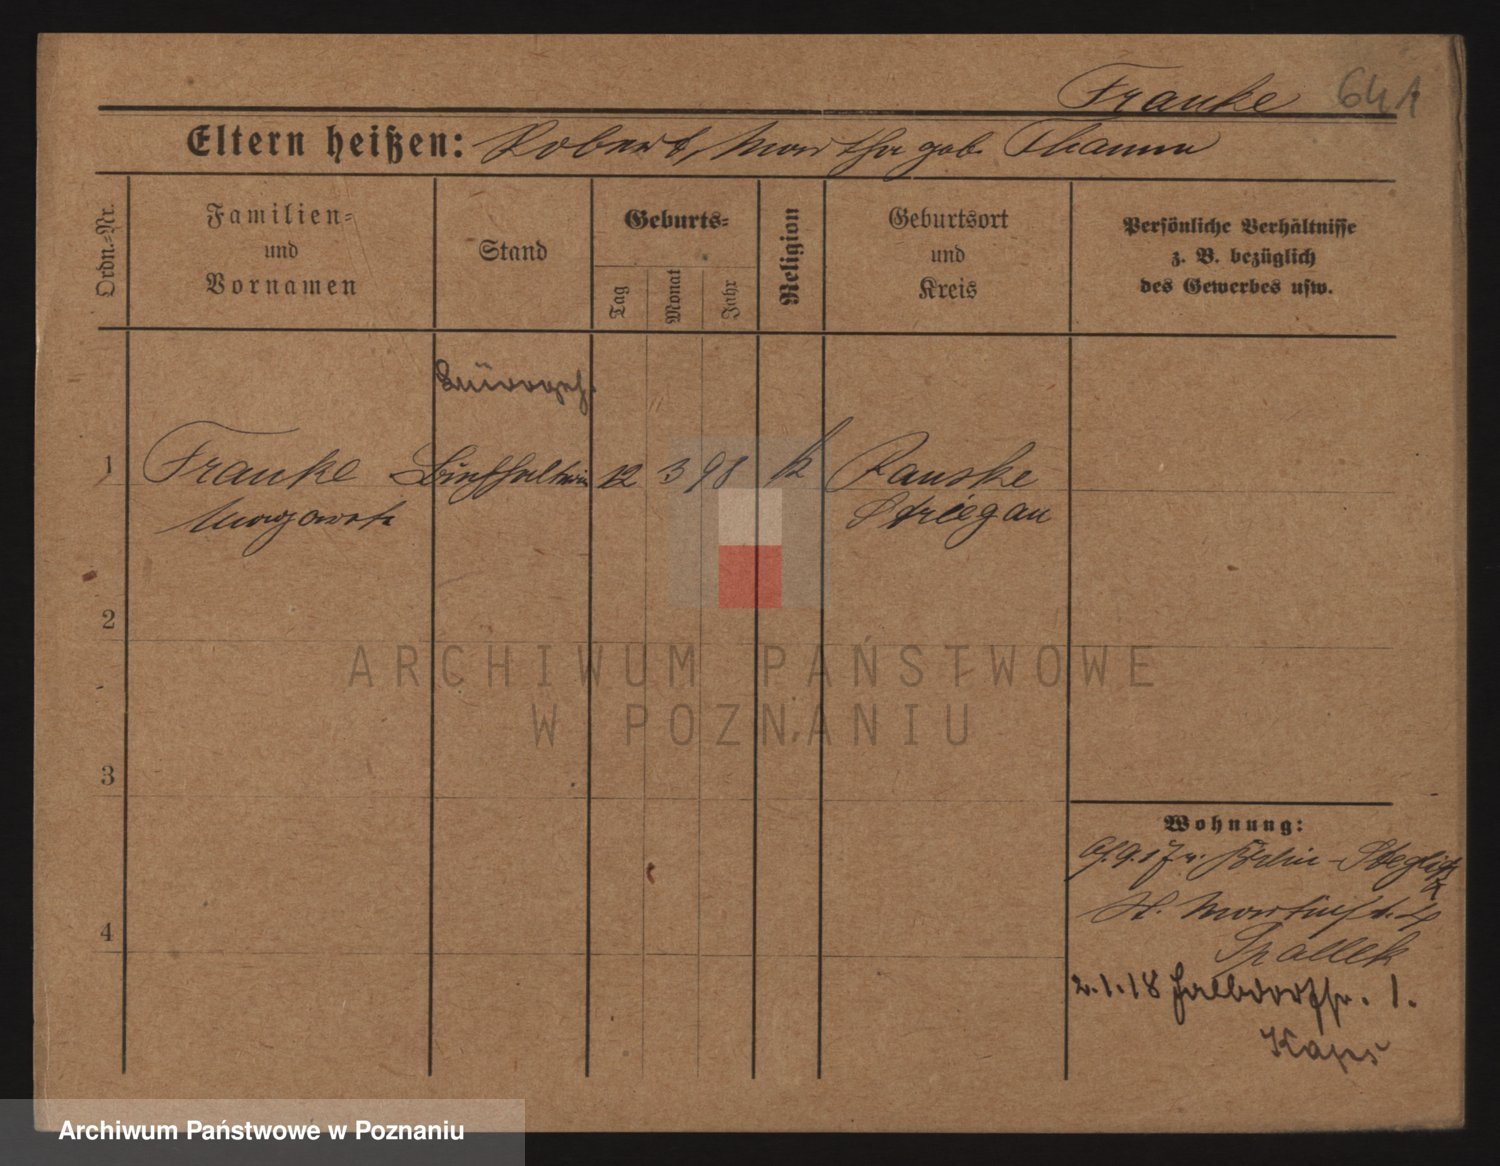 Franke 641
Eltern heißen: Robert, Martha geb. Thamm
Ordn.-Nr.
Familien-
und
Vornamen
Stand
Geburts-
Tag
Monat
Jahr
Religion
Geburtsort
und
Kreis
Persönliche Verhältnisse
z. B. bezüglich
des Gewerbes usw.
Bürogeh.
1 Franke Buchhalterin 12 3 98 k Rauske
Margarete Striegau
2
3
4
Wohnung:
9.17 v. Berlin-Steglitz
St. Martinstr.
Spallek
2.1.18 Halbdorfstr. 1.
Kaps
ARCHIWUM PAŃSTWOWE
W POZNANIU
Archiwum Państwowe w Poznaniu